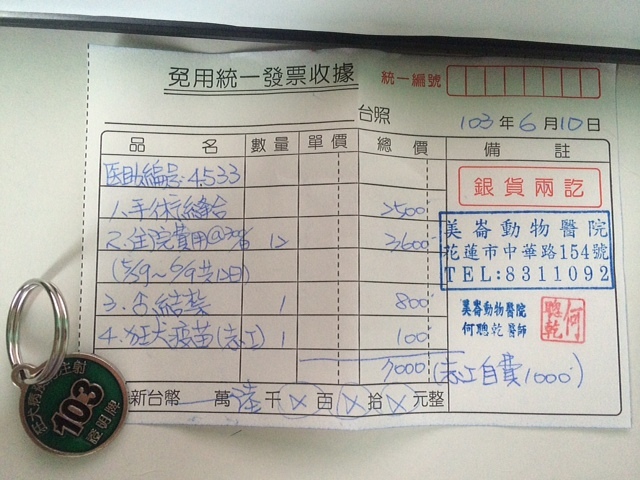 免用統一發票收據
統一編號
台照
103年6月10日
品名 數量 單價 總價 備註
醫助編号:4533
1.手術縫合 2500
2.住院費用@300 12 3600
(5/29~6/9共12日)
3.去結紮 1 800
4.狂犬疫苗(志工) 1 100
7000 (志工自費1000)
新台幣 萬 陸 千 ⓧ 百 ⓧ 拾 ⓧ 元整
銀貨兩訖
美崙動物醫院
花蓮市中華路154號
TEL:8311092
美崙動物醫院
何聰乾醫師
何聰乾
103
證明牌